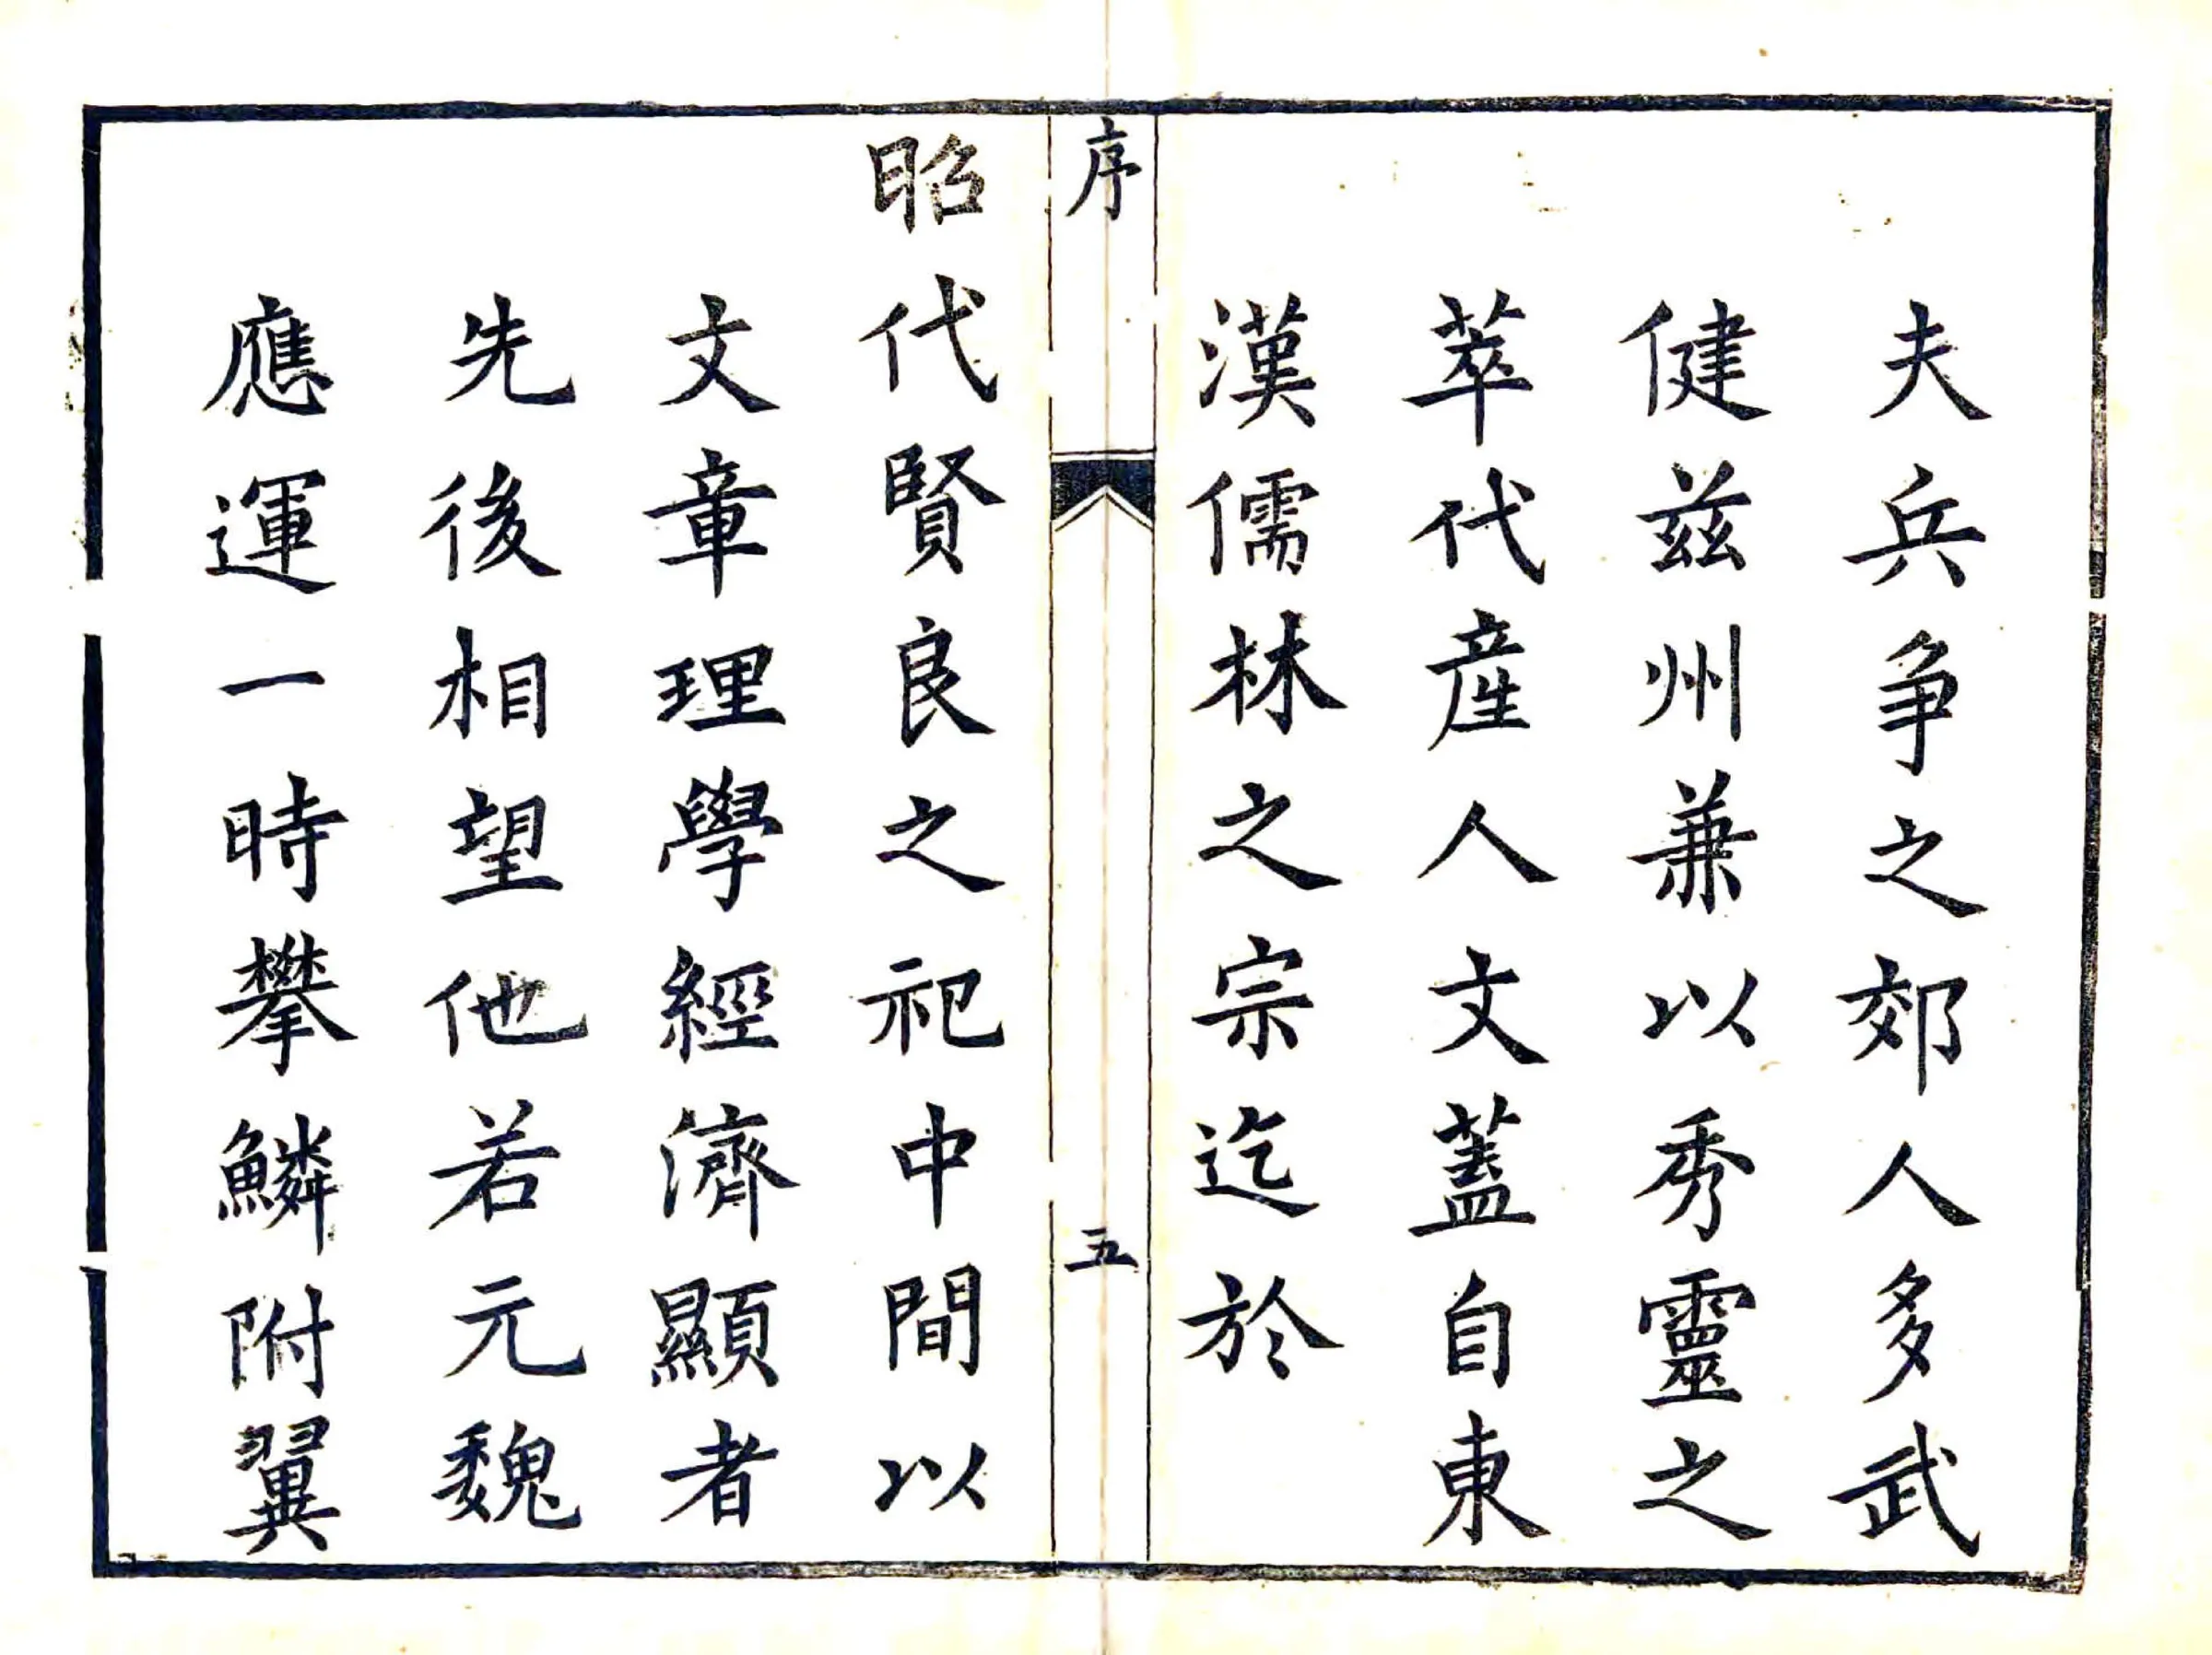 夫兵争之郊人多武
健兹州兼以秀靈之
萃代産人文蓋自東
漢儒林之宗迄於
序
五
昭代賢良之祀中間以
文章理學經濟顯者
先後相望他若元魏
應運一時攀鱗附翼